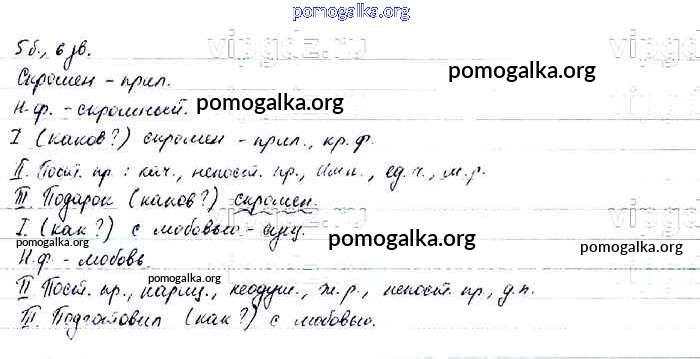 pomogalka.org
5 б., 6 зв.
vipgdz.ru
Скромен – прил.
pomogalka.org
Н.ф. – скромный.
pomogalka.org
I (каков?) скромен – прил., кр. ф.
II. Пост. пр.: кач., непост. пр., Им.п., ед.ч., м.р.
III. Подарок (каков?) скромен.
I (как?) с любовью – сущ.
pomogalka.org
pomogalka.org
Н.ф. – любовь.
pomogalka.org
II Пост. пр., нариц., неодуш., ж.р., непост. пр., д.п.
III. Подготовил (как?) с любовью.